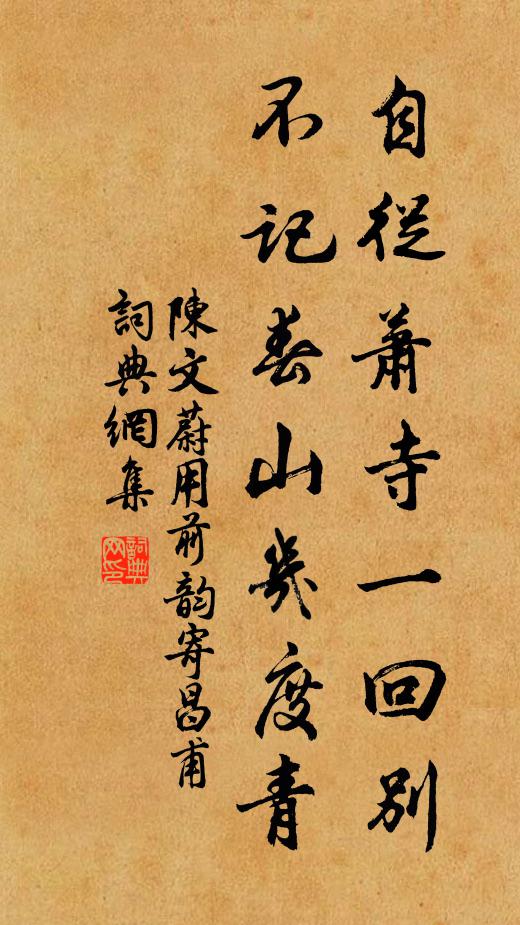 自從蕭寺一回別
不記春山幾度青
陳文蔚用前韵寄昌甫
詞典網集
詞典網印